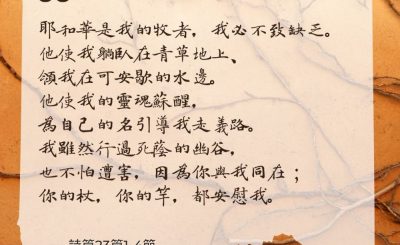 耶和華是我的牧者，我必不致缺乏。
他使我躺臥在青草地上、
領我在可安歇的水邊。
他使我的靈魂蘇醒，
為自己的名引導我走義路。
我雖然行過死蔭的幽谷，
也不怕遭害，因為你與我同在；
你的杖，你的竿，都安慰我。
詩篇23篇1-4節